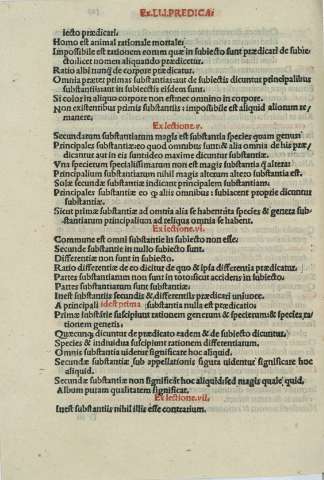 Ex. LI. PREDICAi
iecto prædicari.
Homo est animal rationale mortale:
Impossibile est rationem eorum quæ in subiecto sunt prædicari de subie
cto: licet nomen aliquando prædicetur.
Ratio albi nunq̃ de corpore prædicatur.
Omnia præter primas substantias: aut de subiectis dicuntur principalibus
substantiis: aut in subiectis eisdem sunt.
Si color in aliquo corpore non est: nec omnino in corpore.
Non existentibus primis substantiis: impossibile est aliquid aliorum re/
manere.
Ex lectione .v.
Secundarum substantiarum magis est substantia species quam genus
Principales substantiæ: eo quod omnibus sunt: & alia omnia de his præ/
dicantur aut in eis sunt: ideo maxime dicuntur substantiæ.
Vna specierum specialissimarum non est magis substantia q̃ altera:
Principalium substantiarum nihil magis alterum altero substantia est.
Solæ secundæ substantiæ indicant principalem substantiam.
Principales substantiæ eo q alias omnibus: subiacent proprie dicuntur
substantiæ.
Sicut primæ substantiæ ad omnia alia se habent: ita species & genera sub/
stantiarum principalium ad reliqua omnia se habent.
Ex lectione .vi.
Commune est omni substantiæ in subiecto non esse.
Secundæ substantiæ in nullo subiecto sunt.
Differentiæ non sunt in subiecto.
Ratio differentiæ de eo dicitur de quo & ipsa differentia prædicatur.
Partes substantiarum non sunt in toto sicut accidens in subiecto.
Partes substantiarum sunt substantiæ:
Inest substantiis secundis & differentiis prædicari univoce.
A principali idest prima substantia nulla est prædicatio:
Primæ substãtiæ suscipiunt rationem generum & specierum: & species ra/
tionem generis.
Quæcunq dicuntur de prædicato eadem & de subiecto dicuntur.
Species & individua suscipiunt rationem differentiarum.
Omnis substantia uidetur significare hoc aliquid.
Secundæ substantiæ sub appellationis figura uidentur significare hoc
aliquid.
Secundæ substantiæ non significãt hoc aliquid: sed magis quale quid.
Album puram qualitatem significat.
Ex lectione .vii.
Inest substantiis nihil illis esse contrarium.